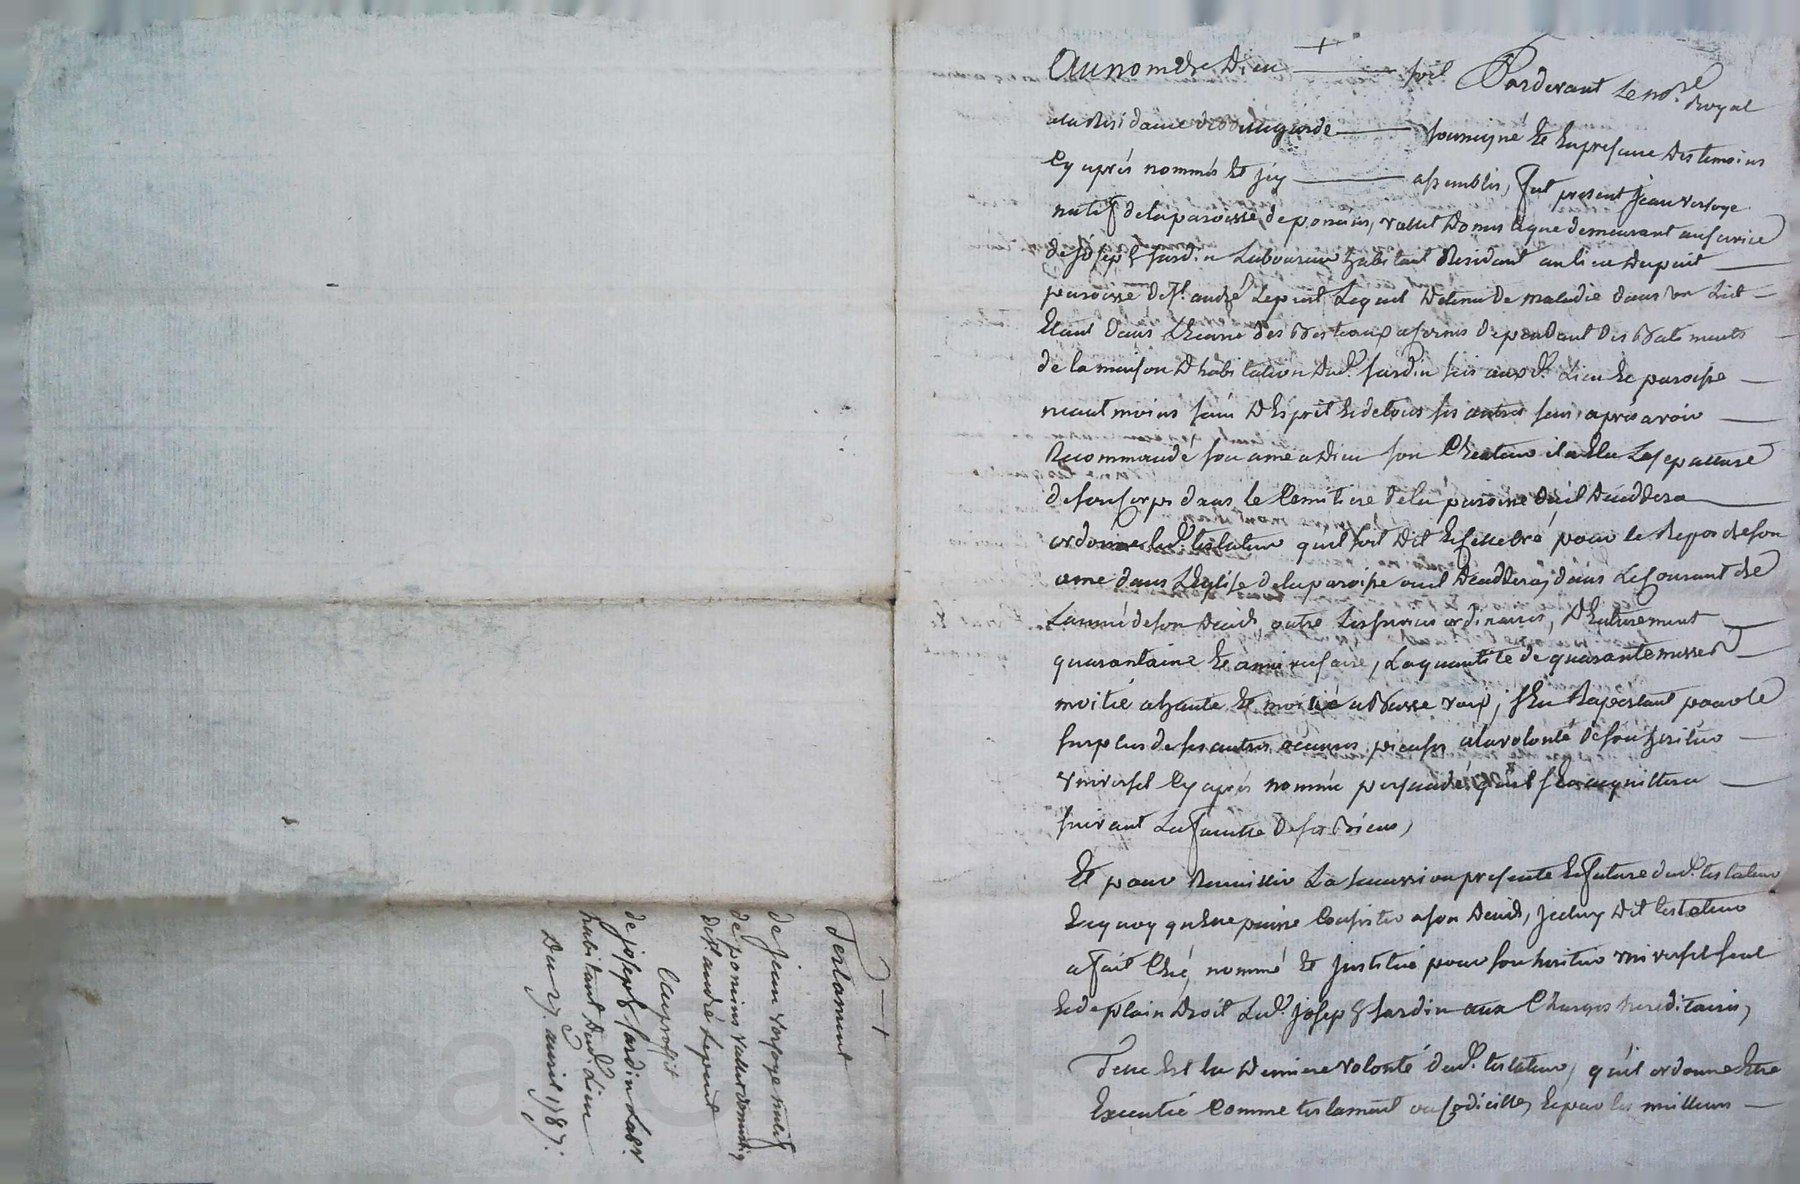 Au nom de Dieu soit Pardevant le no.re Royal
a la Residance de soussigné et en presance des temoins
cy après nommés et icy assemblés, fut present jean
natif de la paroisse de ponsins, valet domestique demeurant au service
de joseph Jardin Laboureur habitant Résidant au lieu du puit
paroisse de st. andré Lepuit Lequel detenu de maladie dans un Lict
étant dans L'écurie des dependant des Batiments
de la maison D'habitation dud. Jardin sis auxd. Lieu et paroisse
neantmoins sain D'ésprit et de tous ses autres sens, après avoir
Recommandé son ame a Dieu son Createur il a élu La sepulture
de son corps dans le Cemitiere de la paroisse ou il deceddera
ordonne led. testateur qu'il soit dit et cellebré pour le Repos de son
ame dans L'églize de la paroisse ou il deceddera, dans Le Courant de
L'année de son deceds, outre Les services ordinaires, D'enterrement
quarantaine et anniversaire, La quantité de quarante messes
moitié a haute et moitié a Basse voix, s'en Raportant pour le
surplus de ses autres œuvres pieuses a la volonté de son heritier
universel cy après nommé persuadé qu'il s'en acquittera
suivant La faculté de ses Biens,
Et pour Recuillir La succession presente et future dud. testateur
en quoy qu'elle puisse Consister a son deceds, jceluy dit testateur
a fait Créé, nommé et jnstitué pour son heritier universel seul
et de plain droit Led. joseph Jardin aux Charges hereditaires,
Telle est la derniere volonté dud. testateur, qu'il ordonne être
Executée Comme testament ou codicille, et par les meilleurs
Testament
de jean natif
de ponsins valet domestiq
de st. andré Lepuit
Au profit
de joseph Jardin Labr.
habitant dud. Lieu
Du 27. avril 1787.